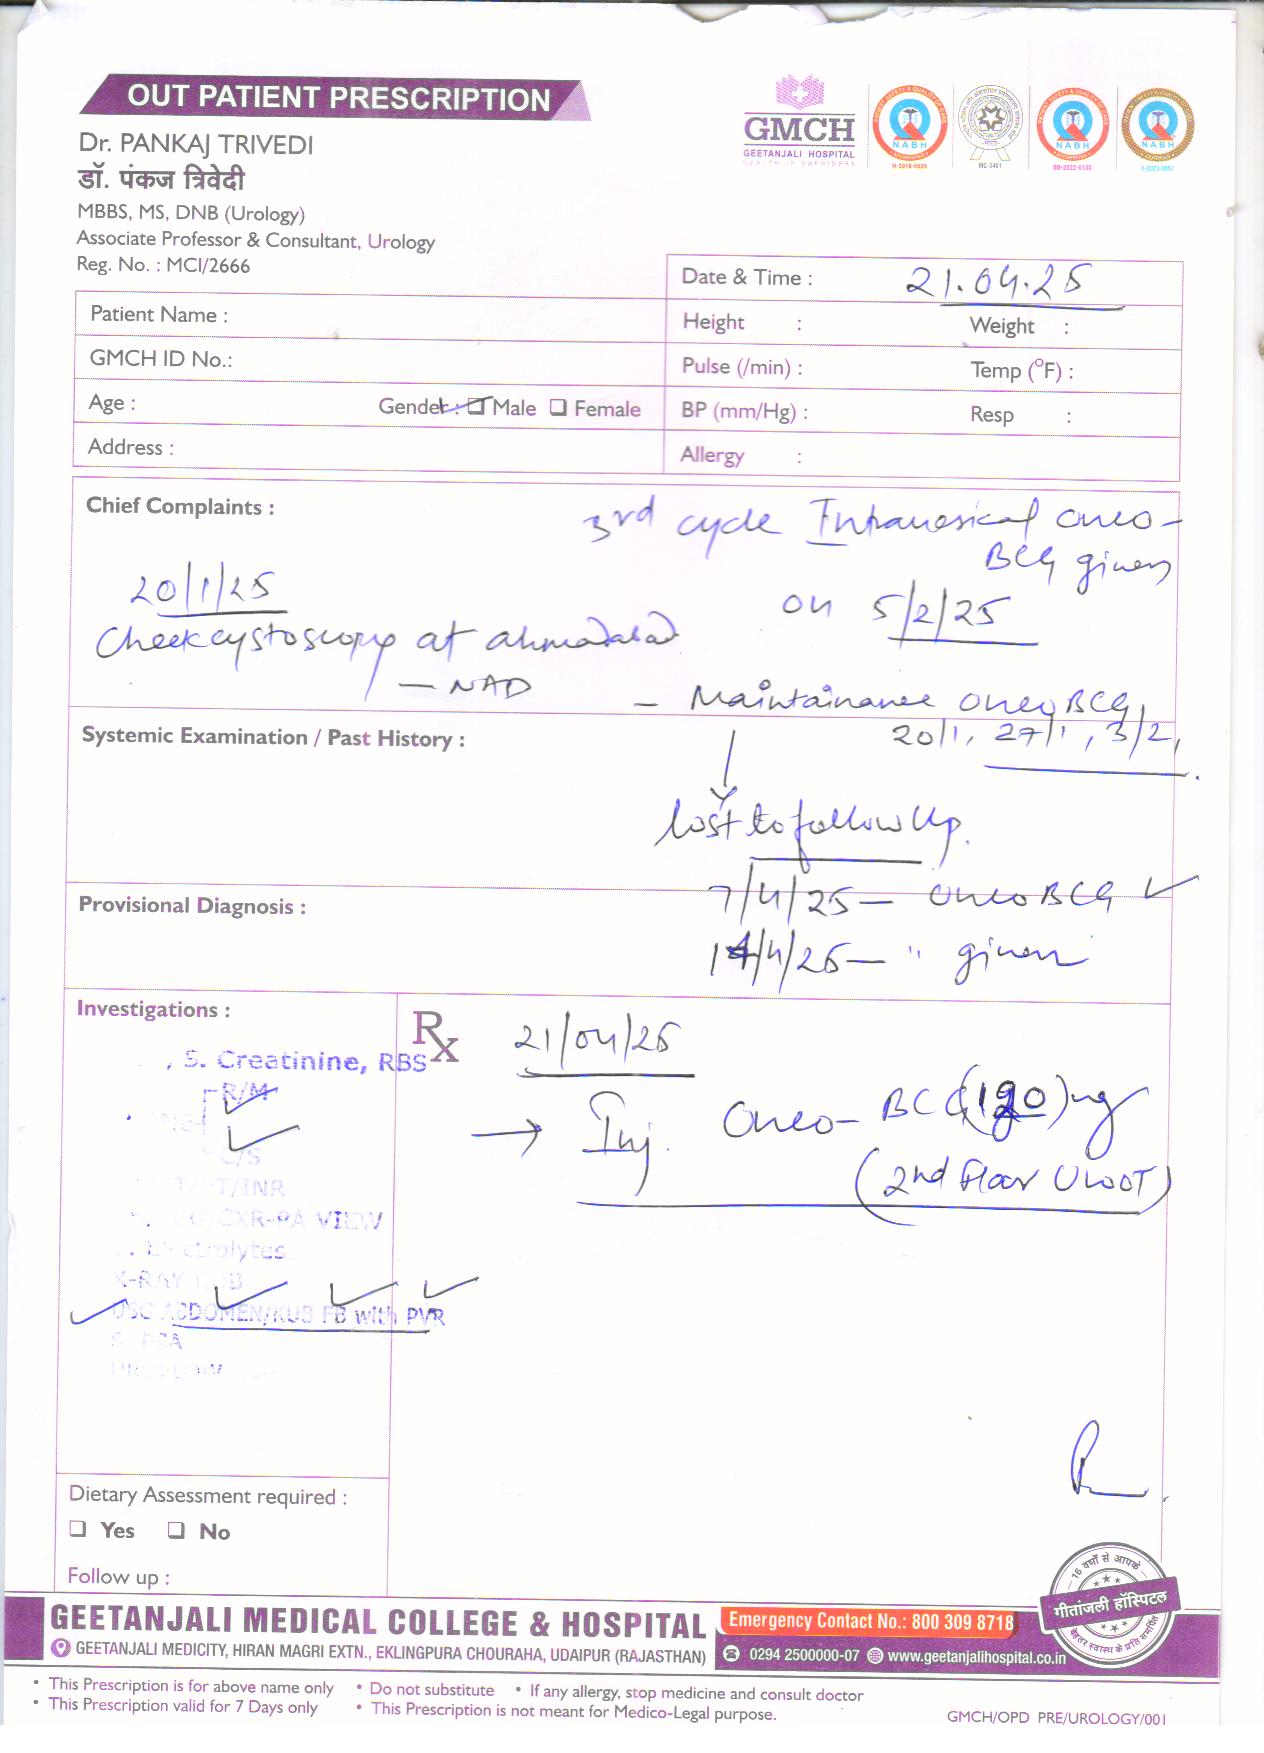 OUT PATIENT PRESCRIPTION
Dr. PANKAJ TRIVEDI
डॉ. पंकज त्रिवेदी
MBBS, MS, DNB (Urology)
Associate Professor & Consultant, Urology
Reg. No. : MCI/2666
GMCH
GEETANJALI HOSPITAL
NABH
H-2018-0535
MC-3461
NABH
BB-2022-0130
NABH
Date & Time : 21.04.25
Patient Name :
Height : Weight :
GMCH ID No.:
Pulse (/min) : Temp (°F) :
Age : Gender : Male Female
BP (mm/Hg) : Resp :
Address :
Allergy :
Chief Complaints :
3rd cycle Intravesical Onco-
BCG given
on 5/2/25
20/1/25
Check cystoscopy at ahmadabad
— NAD
— Maintainance Onco BCG
20/1, 27/1, 3/2,
Systemic Examination / Past History :
lost to follow Up.
7/4/25 — Onco BCG ✓
14/4/25 — " given
Provisional Diagnosis :
Investigations :
, S. Creatinine, RBS
R/M
C/S
PT/INR
CXR-PA VIEW
Electrolytes
X-RAY KUB
USG ABDOMEN/KUB FB with PVR
S. PSA
UROFLOW
Rx 21/04/25
→ Inj. Onco-BCG (120) mg
(2nd Floor UROOT)
Dietary Assessment required :
Yes No
Follow up :
16 वर्षों से आपके
गीतांजली हॉस्पिटल
बेहतर स्वास्थ्य के प्रति समर्पित
GEETANJALI MEDICAL COLLEGE & HOSPITAL
GEETANJALI MEDICITY, HIRAN MAGRI EXTN., EKLINGPURA CHOURAHA, UDAIPUR (RAJASTHAN)
Emergency Contact No.: 800 309 8718
0294 2500000-07 www.geetanjalihospital.co.in
• This Prescription is for above name only • Do not substitute • If any allergy, stop medicine and consult doctor
• This Prescription valid for 7 Days only • This Prescription is not meant for Medico-Legal purpose.
GMCH/OPD PRE/UROLOGY/001